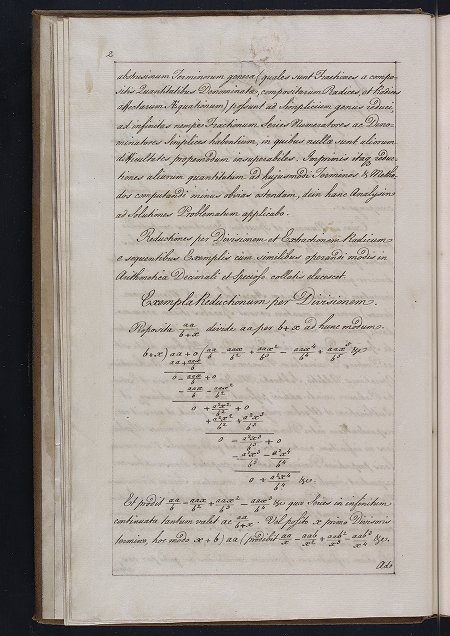 2
abstrusiorum Terminorum genera (quales sunt Fractiones a compo-
sitis Quantitatibus Denominatæ, compositarum Radices, et Radices
affectarum Æquationum) possunt ad Simplicium genus reduci
ad infinitas nempe Fractionum Series Numeratores ac Deno-
minatores Simplices habentium, in quibus nullæ sunt aliorum
difficultates propemodum insuperabiles. Imprimis itaq reduc-
tiones aliarum quantitatum ad hujusmodi Terminos & Metho-
dos computandi minus obvias ostendam, dein hanc Analysin
ad Solutiones Problematum applicabo.
Reductiones per Divisionem et Extractionem Radicum
e sequentibus Exemplis cum similibus operandi modis in
Arithmetica Decimali et Speciosa collatis elucescet.
Exempla Reductionum per Divisionem.
Proposita aa/b+x divide aa per b+x ad hunc modum.
b+x) aa + 0 (aa/b - aax/b² + aax²/b³ - aax³/b⁴ + aax⁴/b⁵ &c
aa + aax/b
0 - aax/b + 0
- aax/b - aax²/b²
0 + a²x²/b² + 0
+ a²x²/b² + a²x³/b³
0 - a²x³/b³ + 0
- a²x³/b³ - a²x⁴/b⁴
0 + a²x⁴/b⁴ &c.
Et prodit aa/b - aax/b² + aax²/b³ - aax³/b⁴ &c quæ Series in infinitum
continuata tantum valet ac aa/b+x. Vel posito x primo Divisoris
termino, hoc modo x + b) aa (prodibit aa/x - aab/x² + aab²/x³ - aab³/x⁴ &c.